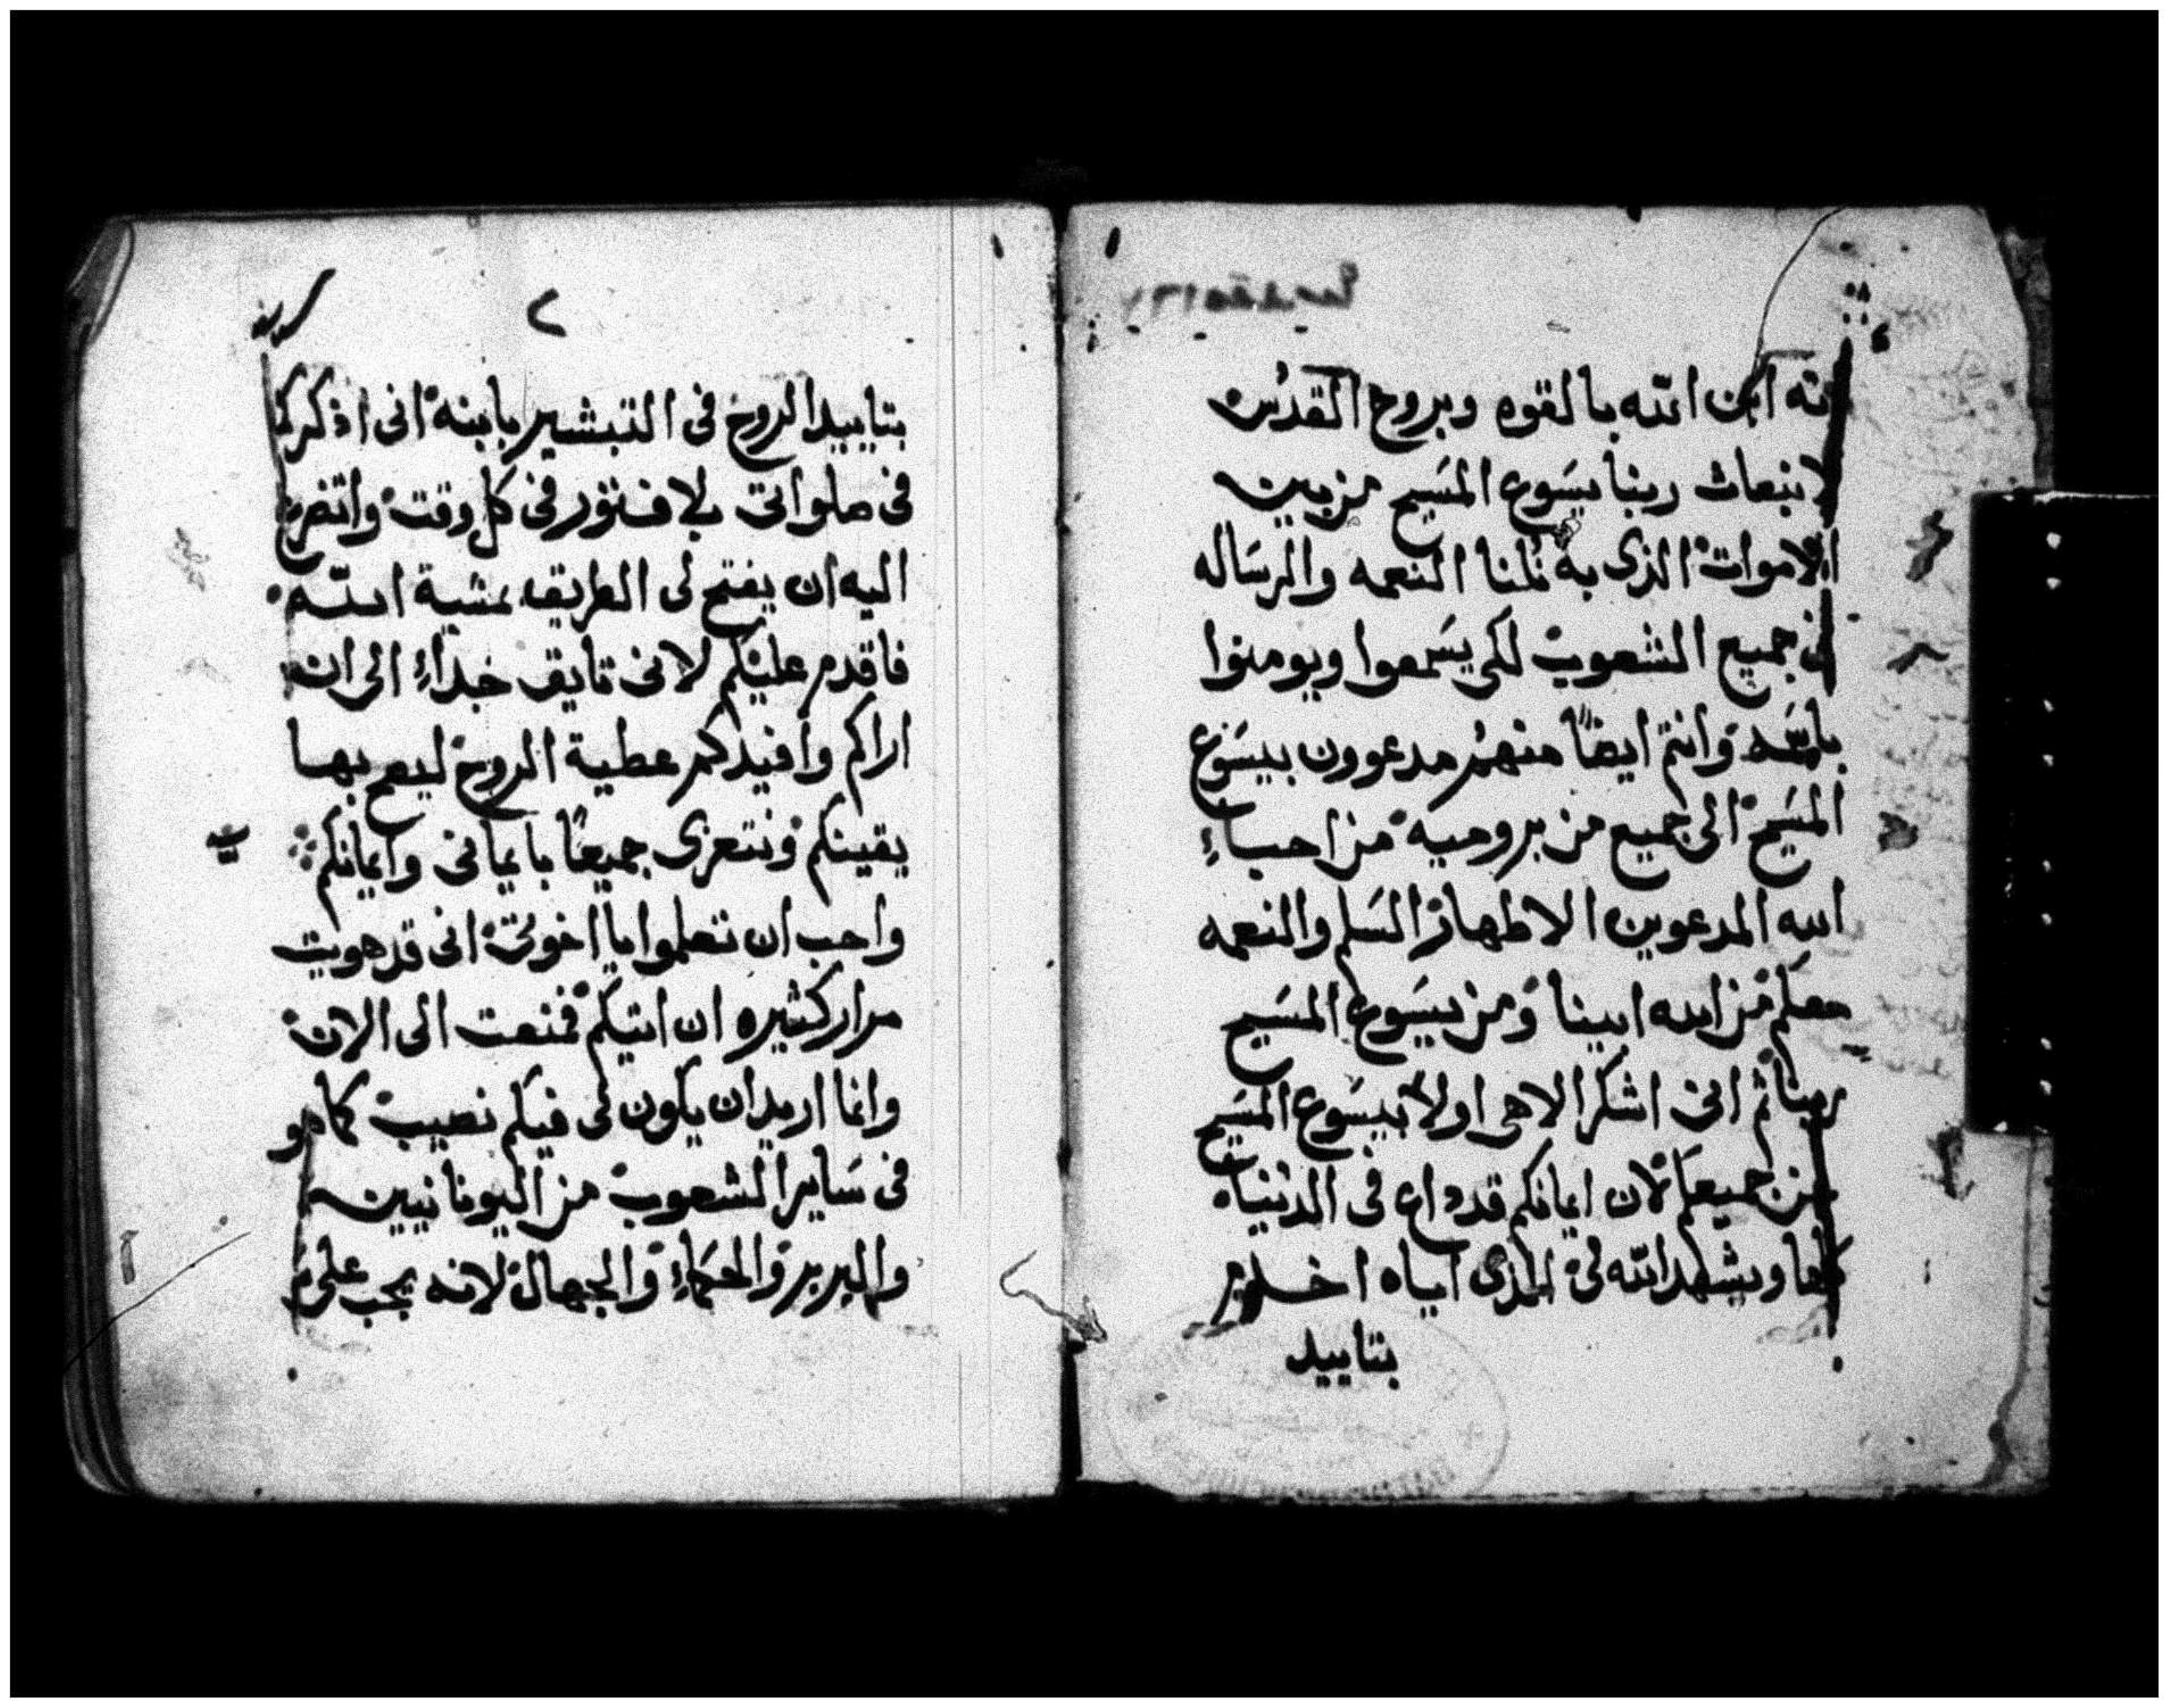 انه ابن الله بالقوه وبروح القدس
لانبعاث ربنا يسَوع المسَيح من بين
الاموات الذى به نُلنا النعمه والرسَاله
فى جميع الشعوب لكى يسَمعوا ويومنوا
باسمه وانتم ايضًا منهمُ مدعوون بيسَوع
المسَيح الى جميع من بروميه من احباءِ
الله المدعوين الاطهار السَلم والنعمه
معكم من الله ابينا ومن يسَوع المسَيح
ربنا ثم انى اشكر الاهى اولا بيسَوع المسَيح
عن جميعكم لان ايمانكم قد داع فى الدنياه
كلها ويشهد الله لى الذى اياه اخدم
بتاييد
٢
بتاييد الروح فى التبشير بابنه انى اذكركم
فى صلواتى بلا فتور فى كل وقت واتضرع
اليه ان يفتح لى الطريق بمشية الله
فاقدم عليكم لانى تايق جداءً الى ان
اراكم وافيدكم عطية الروح ليصح بها
يقينكم ونتعزى جميعًا بايمانى وايمانكم
واحب ان تعلموا يا اخوتى انى قد هويت
مرار كثيره ان اتيكم فمنعت الى الان
وانما اريد ان يكون لى فيكم نصيب كما هو
فى سَاير الشعوب من اليونانيين
والبربر والحكماءِ والجهال لانه يجب على